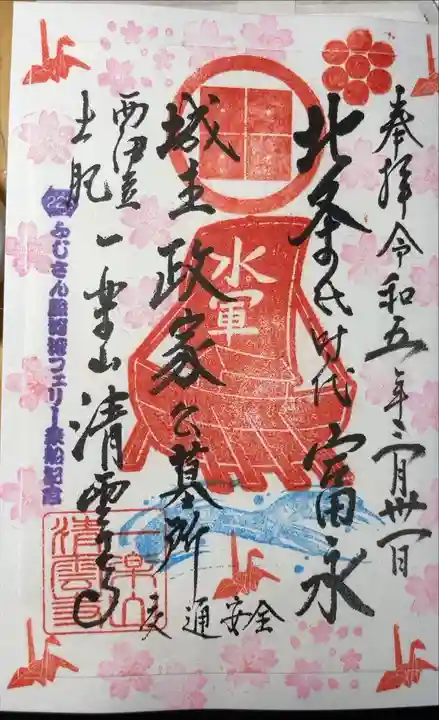 奉拝令和五年三月卅一日
北条氏時代 富永
水軍
城主政家公墓所
交通安全
西伊豆
土肥
一楽山清雲寺
22
ふじさん駿河湾フェリー乗船記念
一楽山
清雲寺